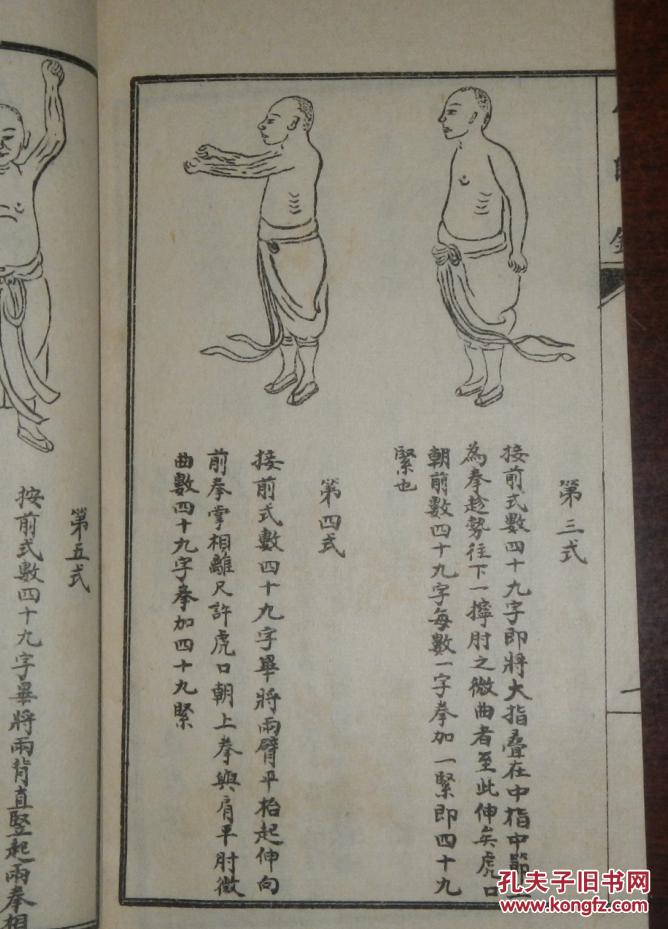 第三式
接前式數四十九字即將大指疊在中指中節
為拳趁勢往下一擰肘之微曲者至此伸矣虎口
朝前數四十九字每數一字拳加一緊即四十九
緊也
第四式
接前式數四十九字畢將兩臂平抬起伸向
前拳掌相離尺許虎口朝上拳與肩平肘微
曲數四十九字拳加四十九緊
第五式
按前式數四十九字畢將兩背直豎起兩拳相
孔夫子旧书网
www.kongfz.com